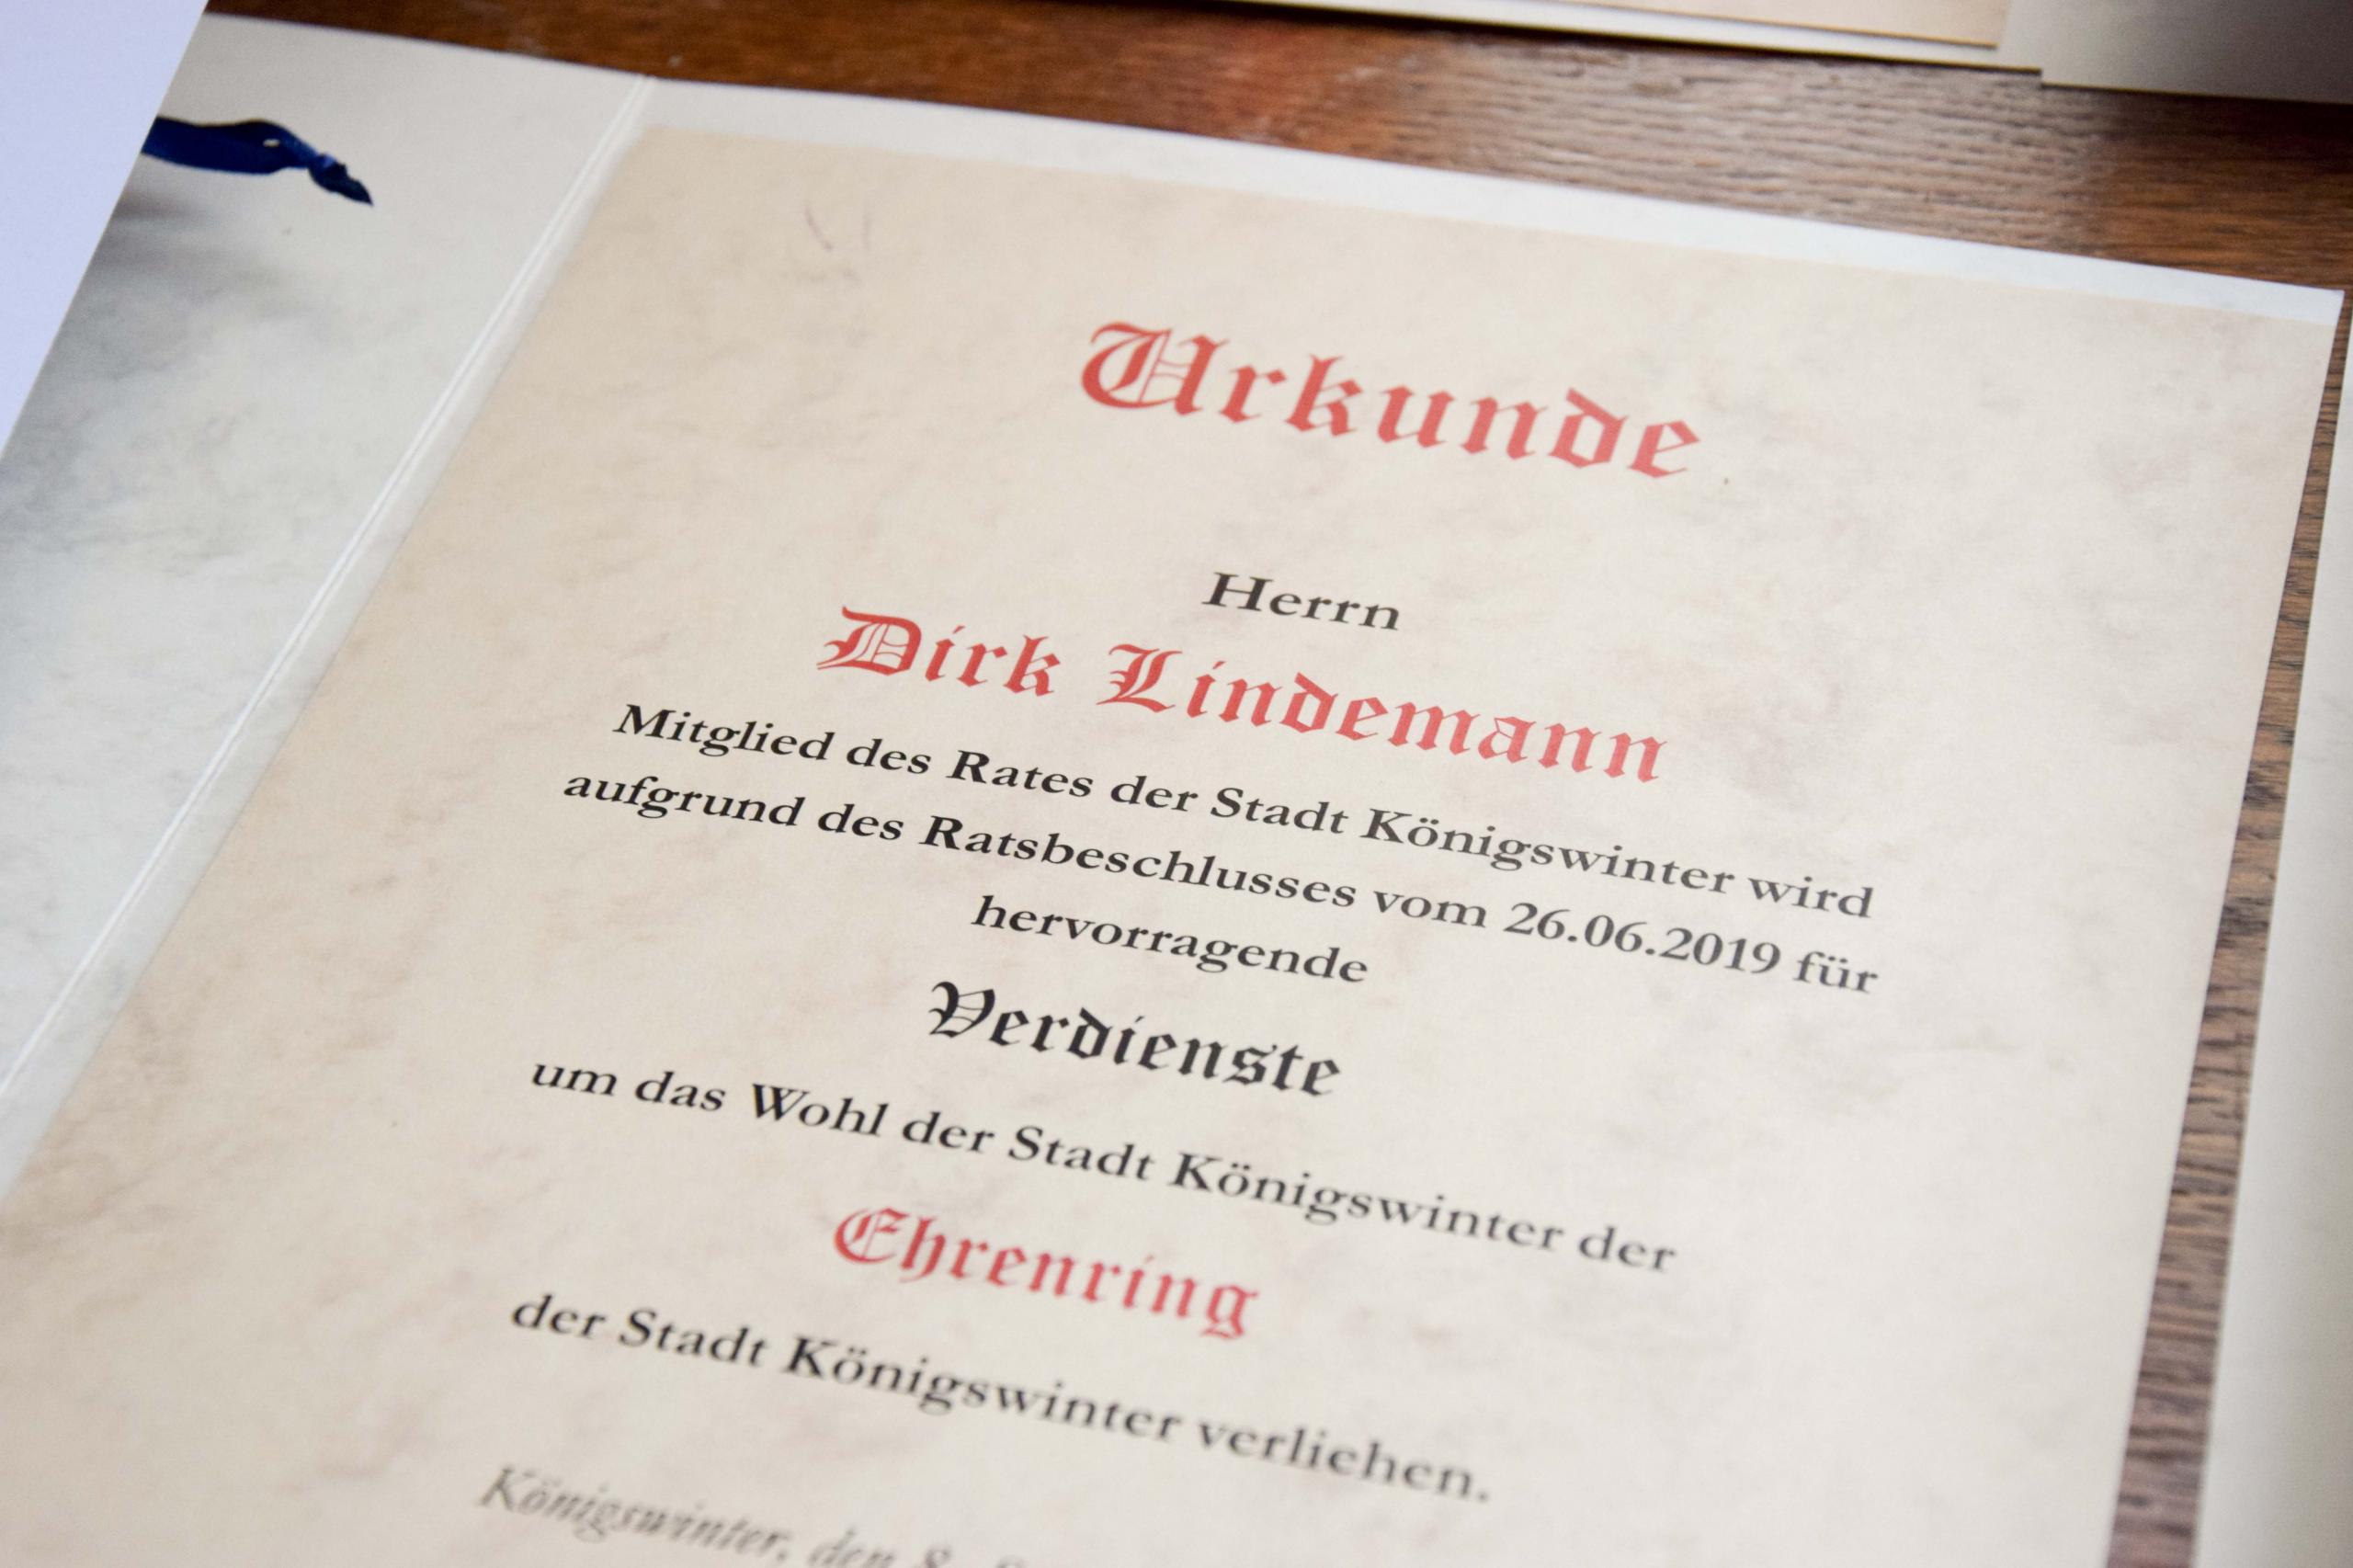 Urkunde
Herrn
Dirk Lindemann
Mitglied des Rates der Stadt Königswinter wird
aufgrund des Ratsbeschlusses vom 26.06.2019 für
hervorragende
Verdienste
um das Wohl der Stadt Königswinter der
Ehrenring
der Stadt Königswinter verliehen.
Königswinter, den 8.